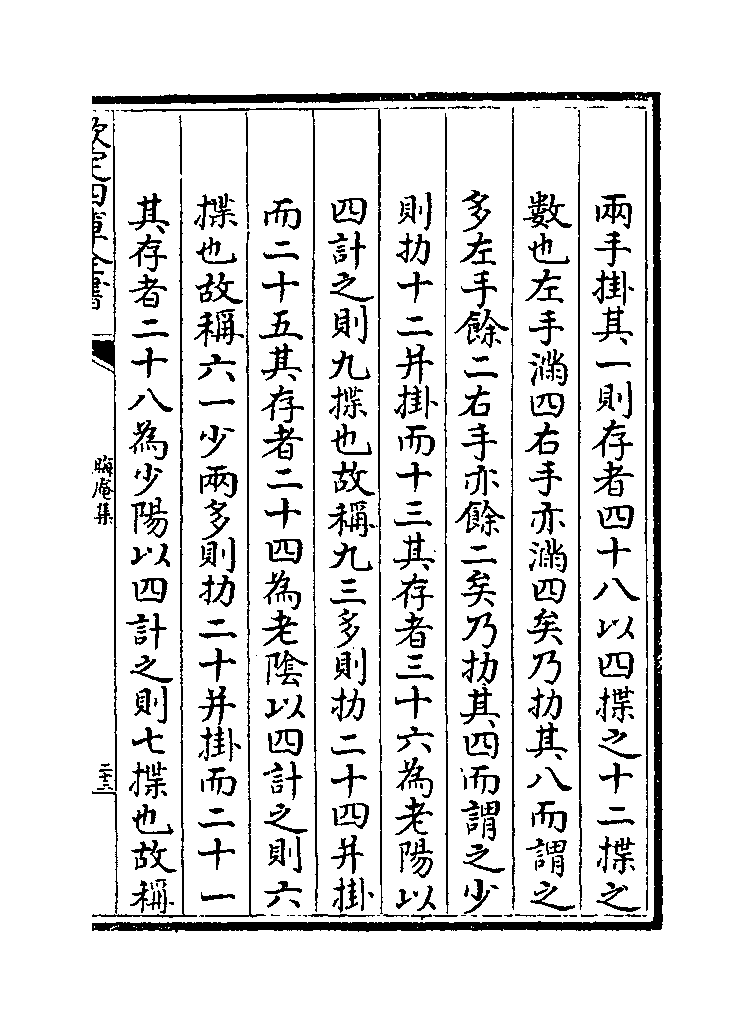 兩手掛其一則存者四十八以四揲之十二揲之
數也左手滿四右手亦滿四矣乃扐其八而謂之
多左手餘二右手亦餘二矣乃扐其四而謂之少
則扐十二并掛而十三其存者三十六為老陽以
四計之則九揲也故稱九三多則扐二十四并掛
而二十五其存者二十四為老陰以四計之則六
揲也故稱六一少兩多則扐二十并掛而二十一
其存者二十八為少陽以四計之則七揲也故稱
欽定四庫全書
晦庵集
二十三